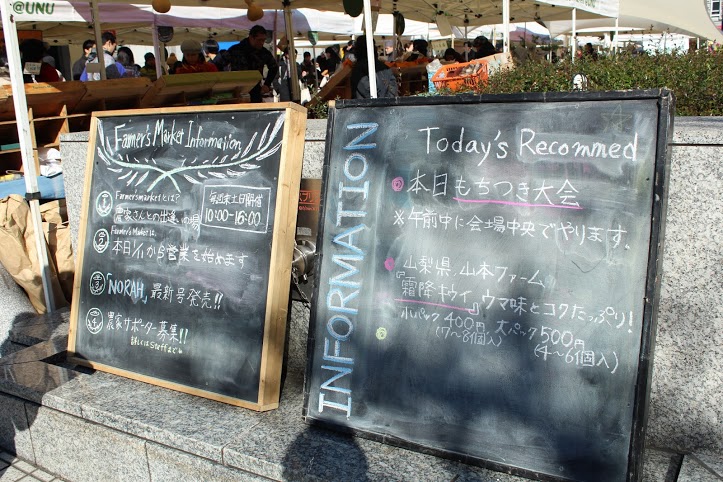 @UNU
Farmer's Market Information
毎週末土日開催
10:00-16:00
Farmersmarketとは?
農家さんとの出逢いの場
Farmer's Market は、
本日から営業を始めます
『NORAH』最新号発売!!
農家サポーター募集!!
詳しくはStaffまで
INFORMATION
Today's Recommed
本日もちつき大会
※午前中に会場中央でやります.
山梨県.山本ファーム
『霜降キウイ』ウマ味とコクたっぷり!
小パック400円 大パック500円
(7〜8個入) (4〜6個入)